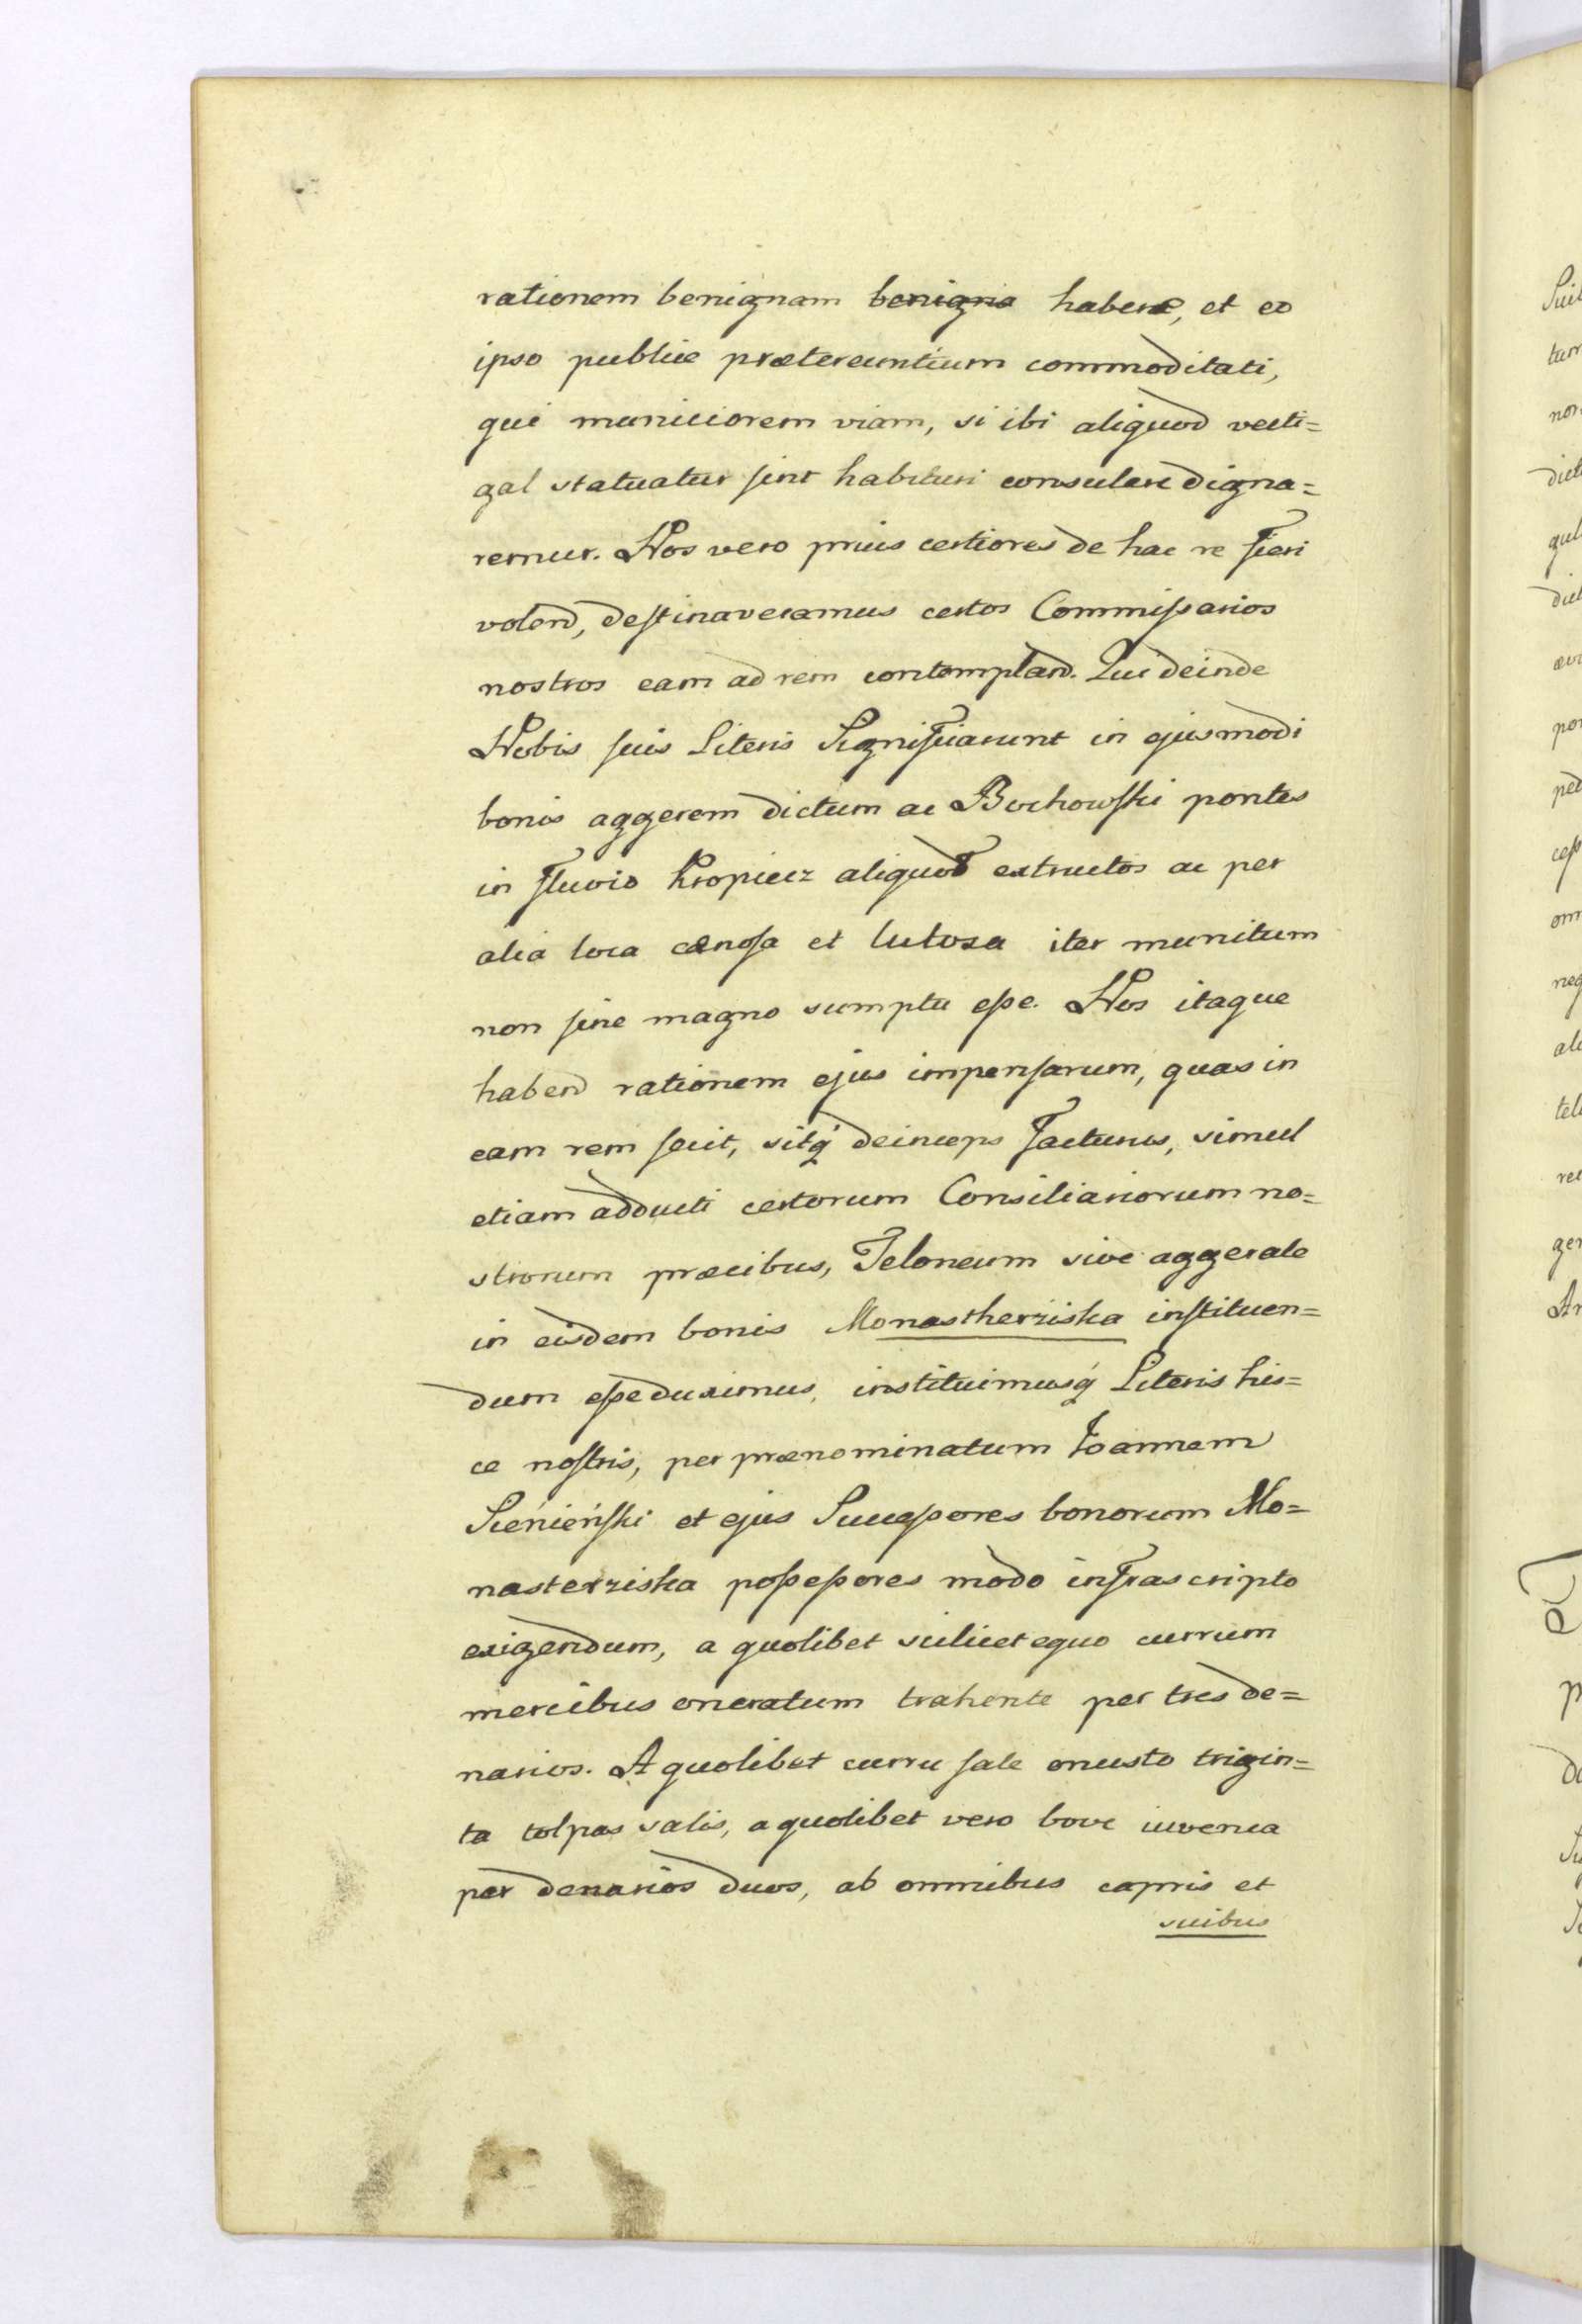 rationem benignam benigne habere, et eo
ipso publice prætereuntium commoditati,
qui municiorem viam, si ibi aliquod vecti=
gal statuatur sint habituri consulere digna=
remur. Nos vero prius certiores de hac re fieri
volend, destinaveramus certos Commissarios
nostros eam ad rem contempland. Qui deinde
Nobis suis Literis Significarunt in ejusmodi
bonis aggerem dictum ac Bochowski pontes
in fluvio Kropiecz aliquot extructos ac per
alia loca cænosa et lutosa iter munitum
non sine magno sumptu esse. Nos itaque
habend rationem ejus impensarum, quas in
eam rem fecit, sitq́ deinceps facturus, simul
etiam adducti certorum Consiliariorum no=
strorum precibus, Teloneum sive aggerale
in eisdem bonis Monastherziska instituen=
dum esse duximus, instituimusq́ Literis his=
ce nostris, per prænominatum Joannem
Siénieński et ejus Successores bonorum Mo=
nasterziska possessores modo infrascripto
exigendum, a quolibet scilicet equo currum
mercibus oneratum trahente per tres de=
narios. A quolibet curru sale onusto trigin=
ta tolpas salis, a quolibet vero bove iuvenca
per denarios duos, ab omnibus capris et
suibus